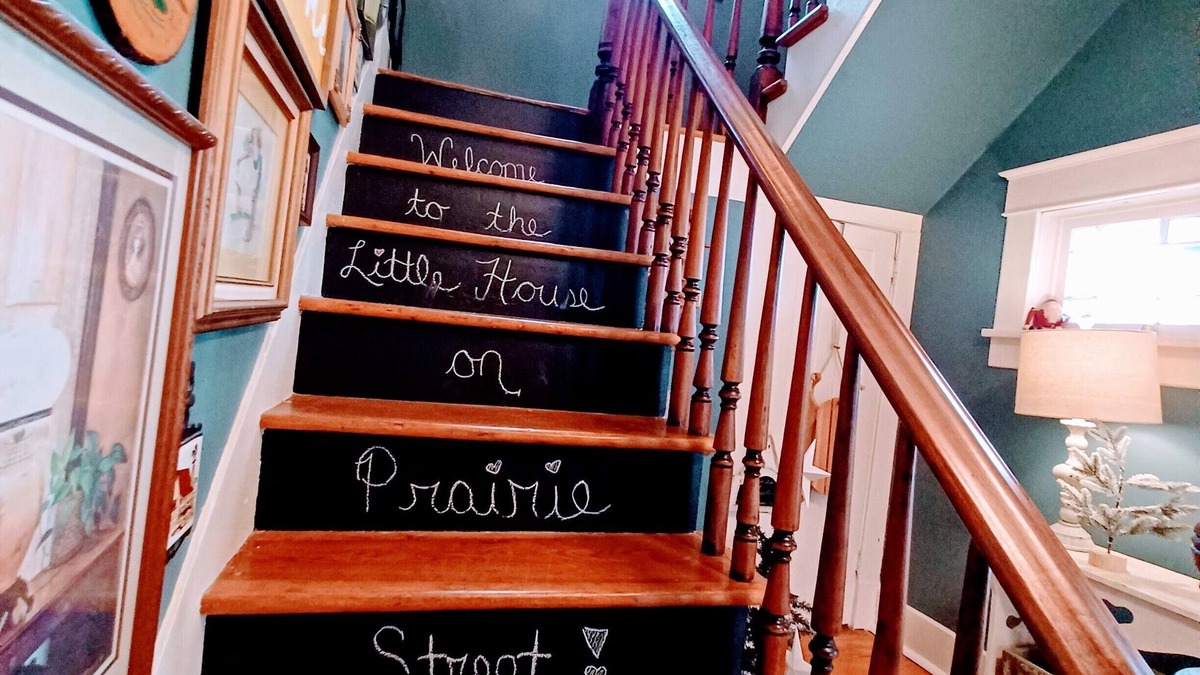 Welcome
to the
Little House
on
Prairie
Street